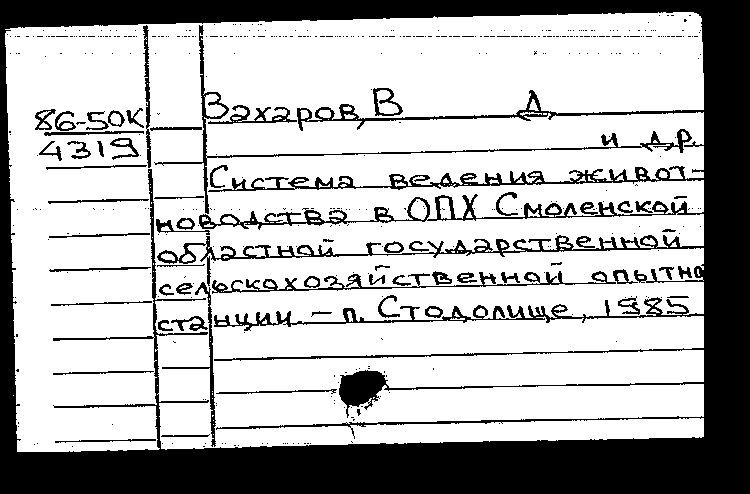 86-50К
4319
Захаров, В Д
и др.
Система ведения живот-
новодства в ОПХ Смоленской
областной государственной
сельскохозяйственной опытно
станции – п. Стодолище, 1985